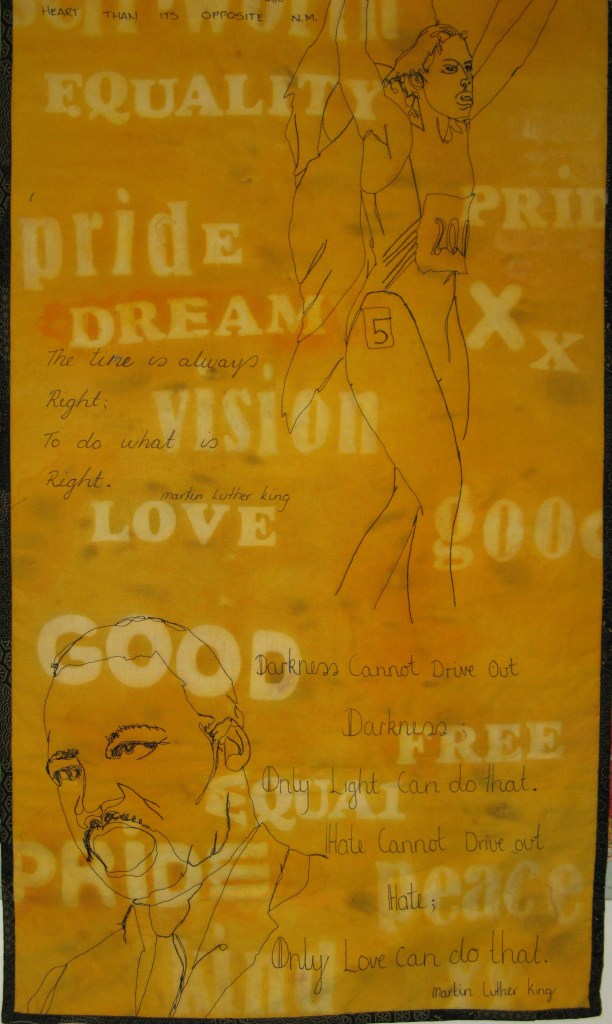 self worth
HEART THAN ITS OPPOSITE N.M.
EQUALITY
pridE
PRID
DREAM
X x
5
The time is always
Right;
To do what is
Right.
martin Luther king
vision
LOVE
good
GOOD
Darkness Cannot Drive Out
Darkness.
FREE
Only Light Can do that.
EQUAL
Hate Cannot Drive out
PRIDE
peace
Hate;
Only Love Can do that.
kind
martin Luther king